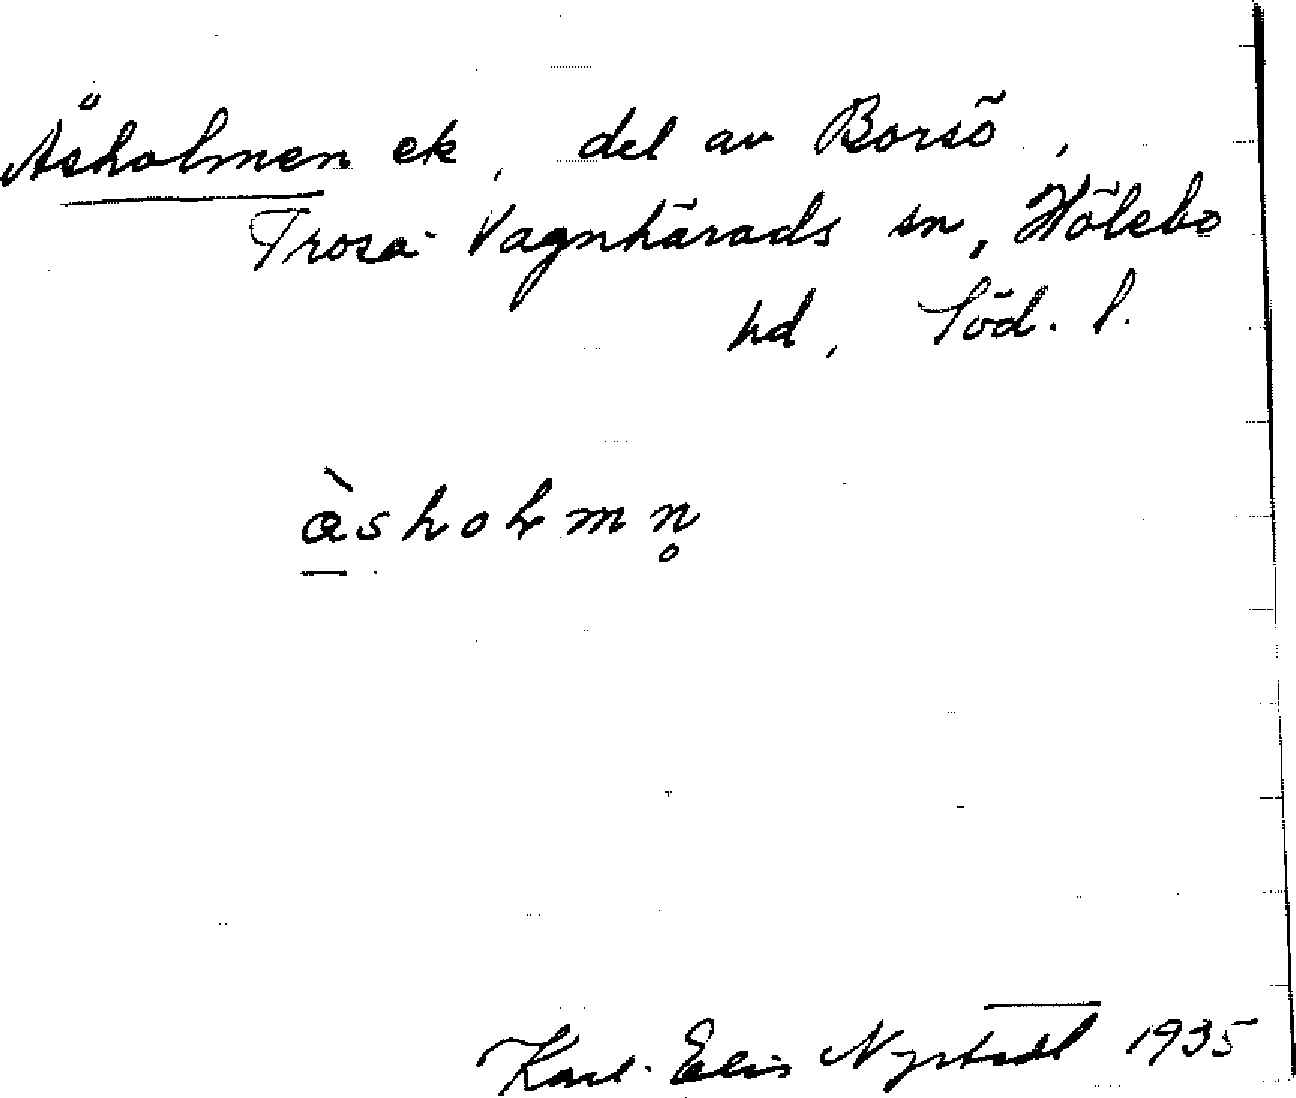 Åsholmen ek, del av Borsö,
Trosa-Vagnhärads sn, Hölebo
hd, Söd. l.
àsholmn̥
Karl-Elis Nystedt 1935